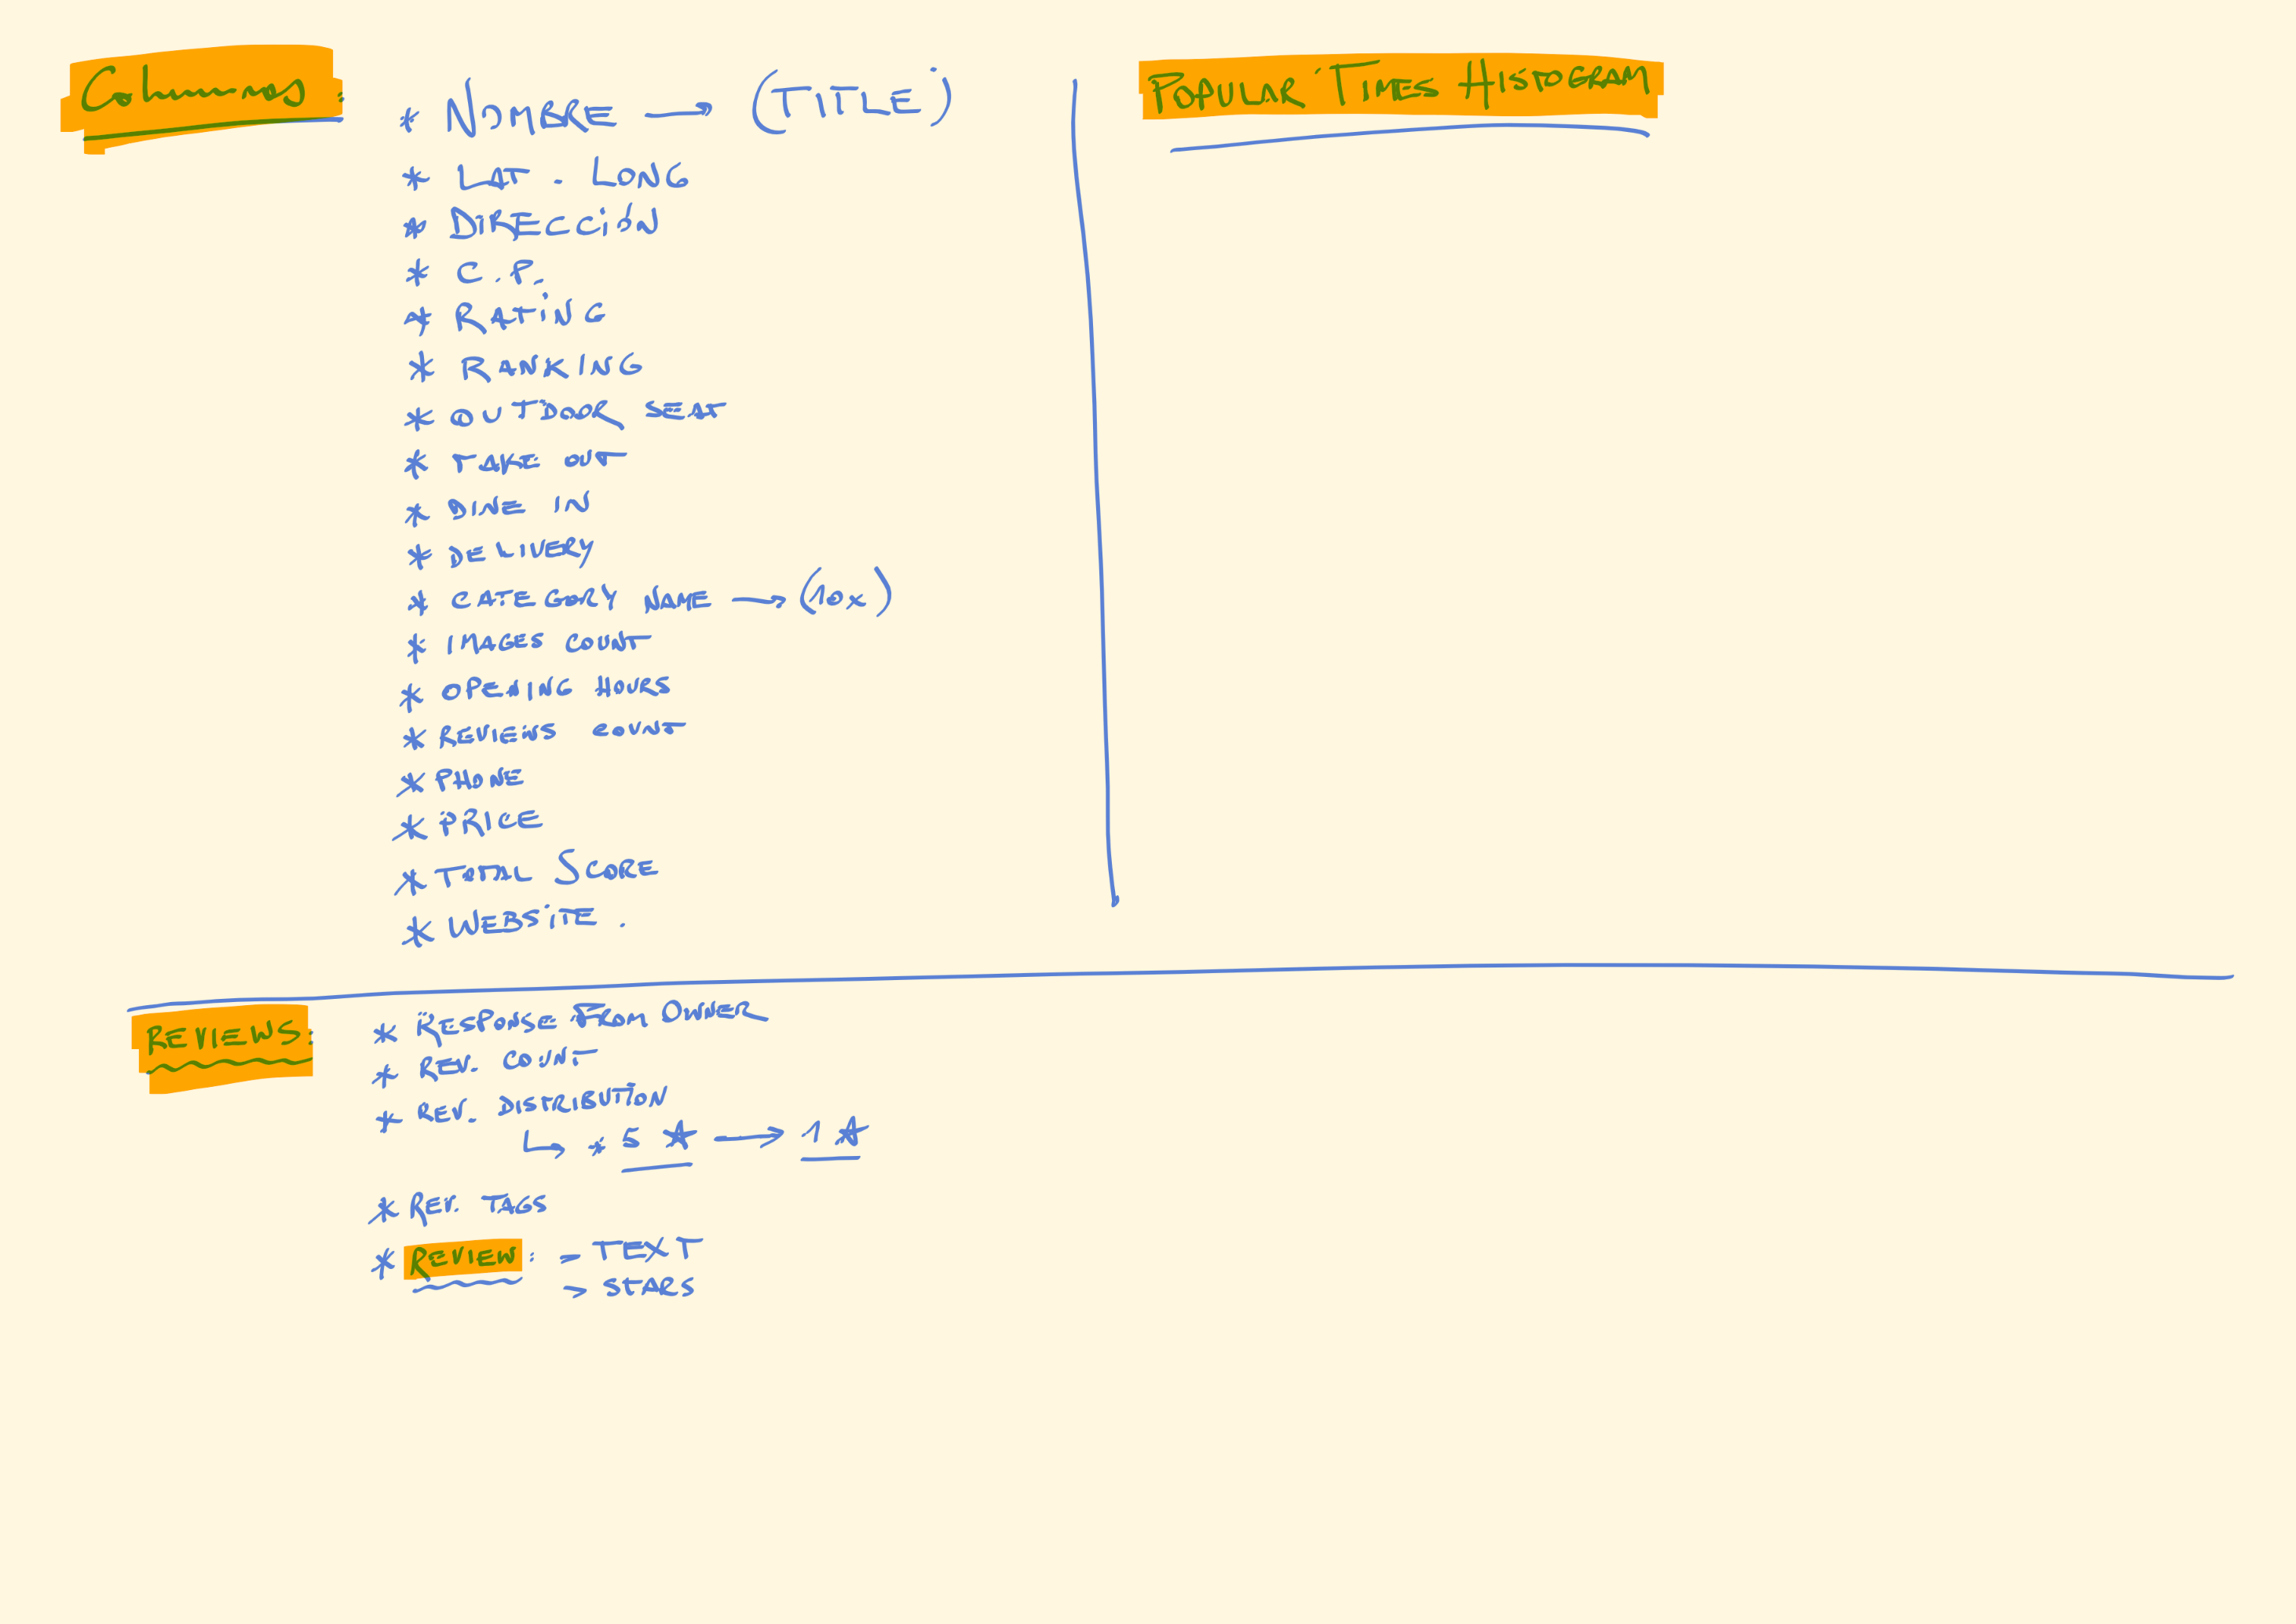 Columnas:
* NOMBRE → (TITLE)
* LAT. LONG
* DIRECCIÓN
* C.P.
* RATING
* RANKING
* OUTDOOR SEAT
* TAKE OUT
* DINE IN
* DELIVERY
* CATEGORY NAME → (10x)
* IMAGES COUNT
* OPENING HOURS
* REVIEWS COUNT
* PHONE
* PRICE
* TOTAL SCORE
* WEBSITE.
POPULAR TIMES HISTOGRAM
REVIEWS:
* RESPONSE FROM OWNER
* REV. COUNT
* REV. DISTRIBUTION
↳ * 5 ☆ → 1 ☆
* REV. TAGS
* REVIEW: - TEXT
> STARS